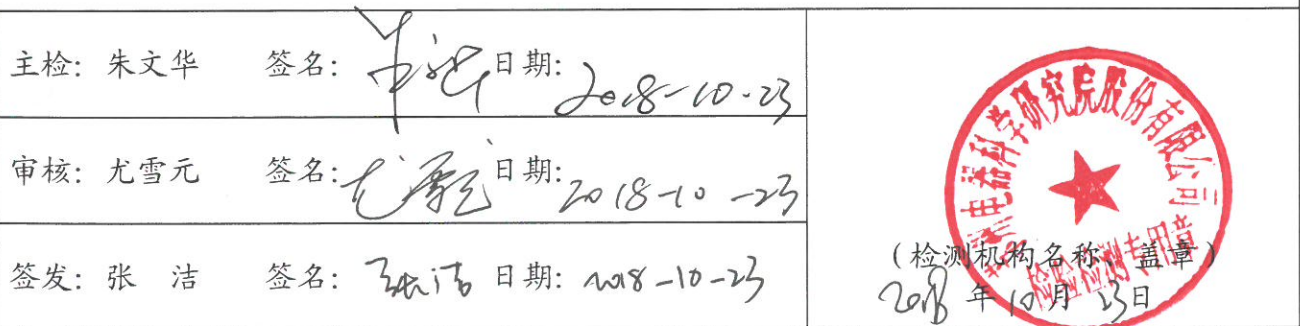 主检：朱文华 签名：朱文华 日期：2018-10-23
审核：尤雪元 签名：尤雪元 日期：2018-10-23
签发：张 洁 签名：张洁 日期：2018-10-23
苏州电器科学研究院股份有限公司
检验检测专用章
（检测机构名称、盖章）
2018年10月23日